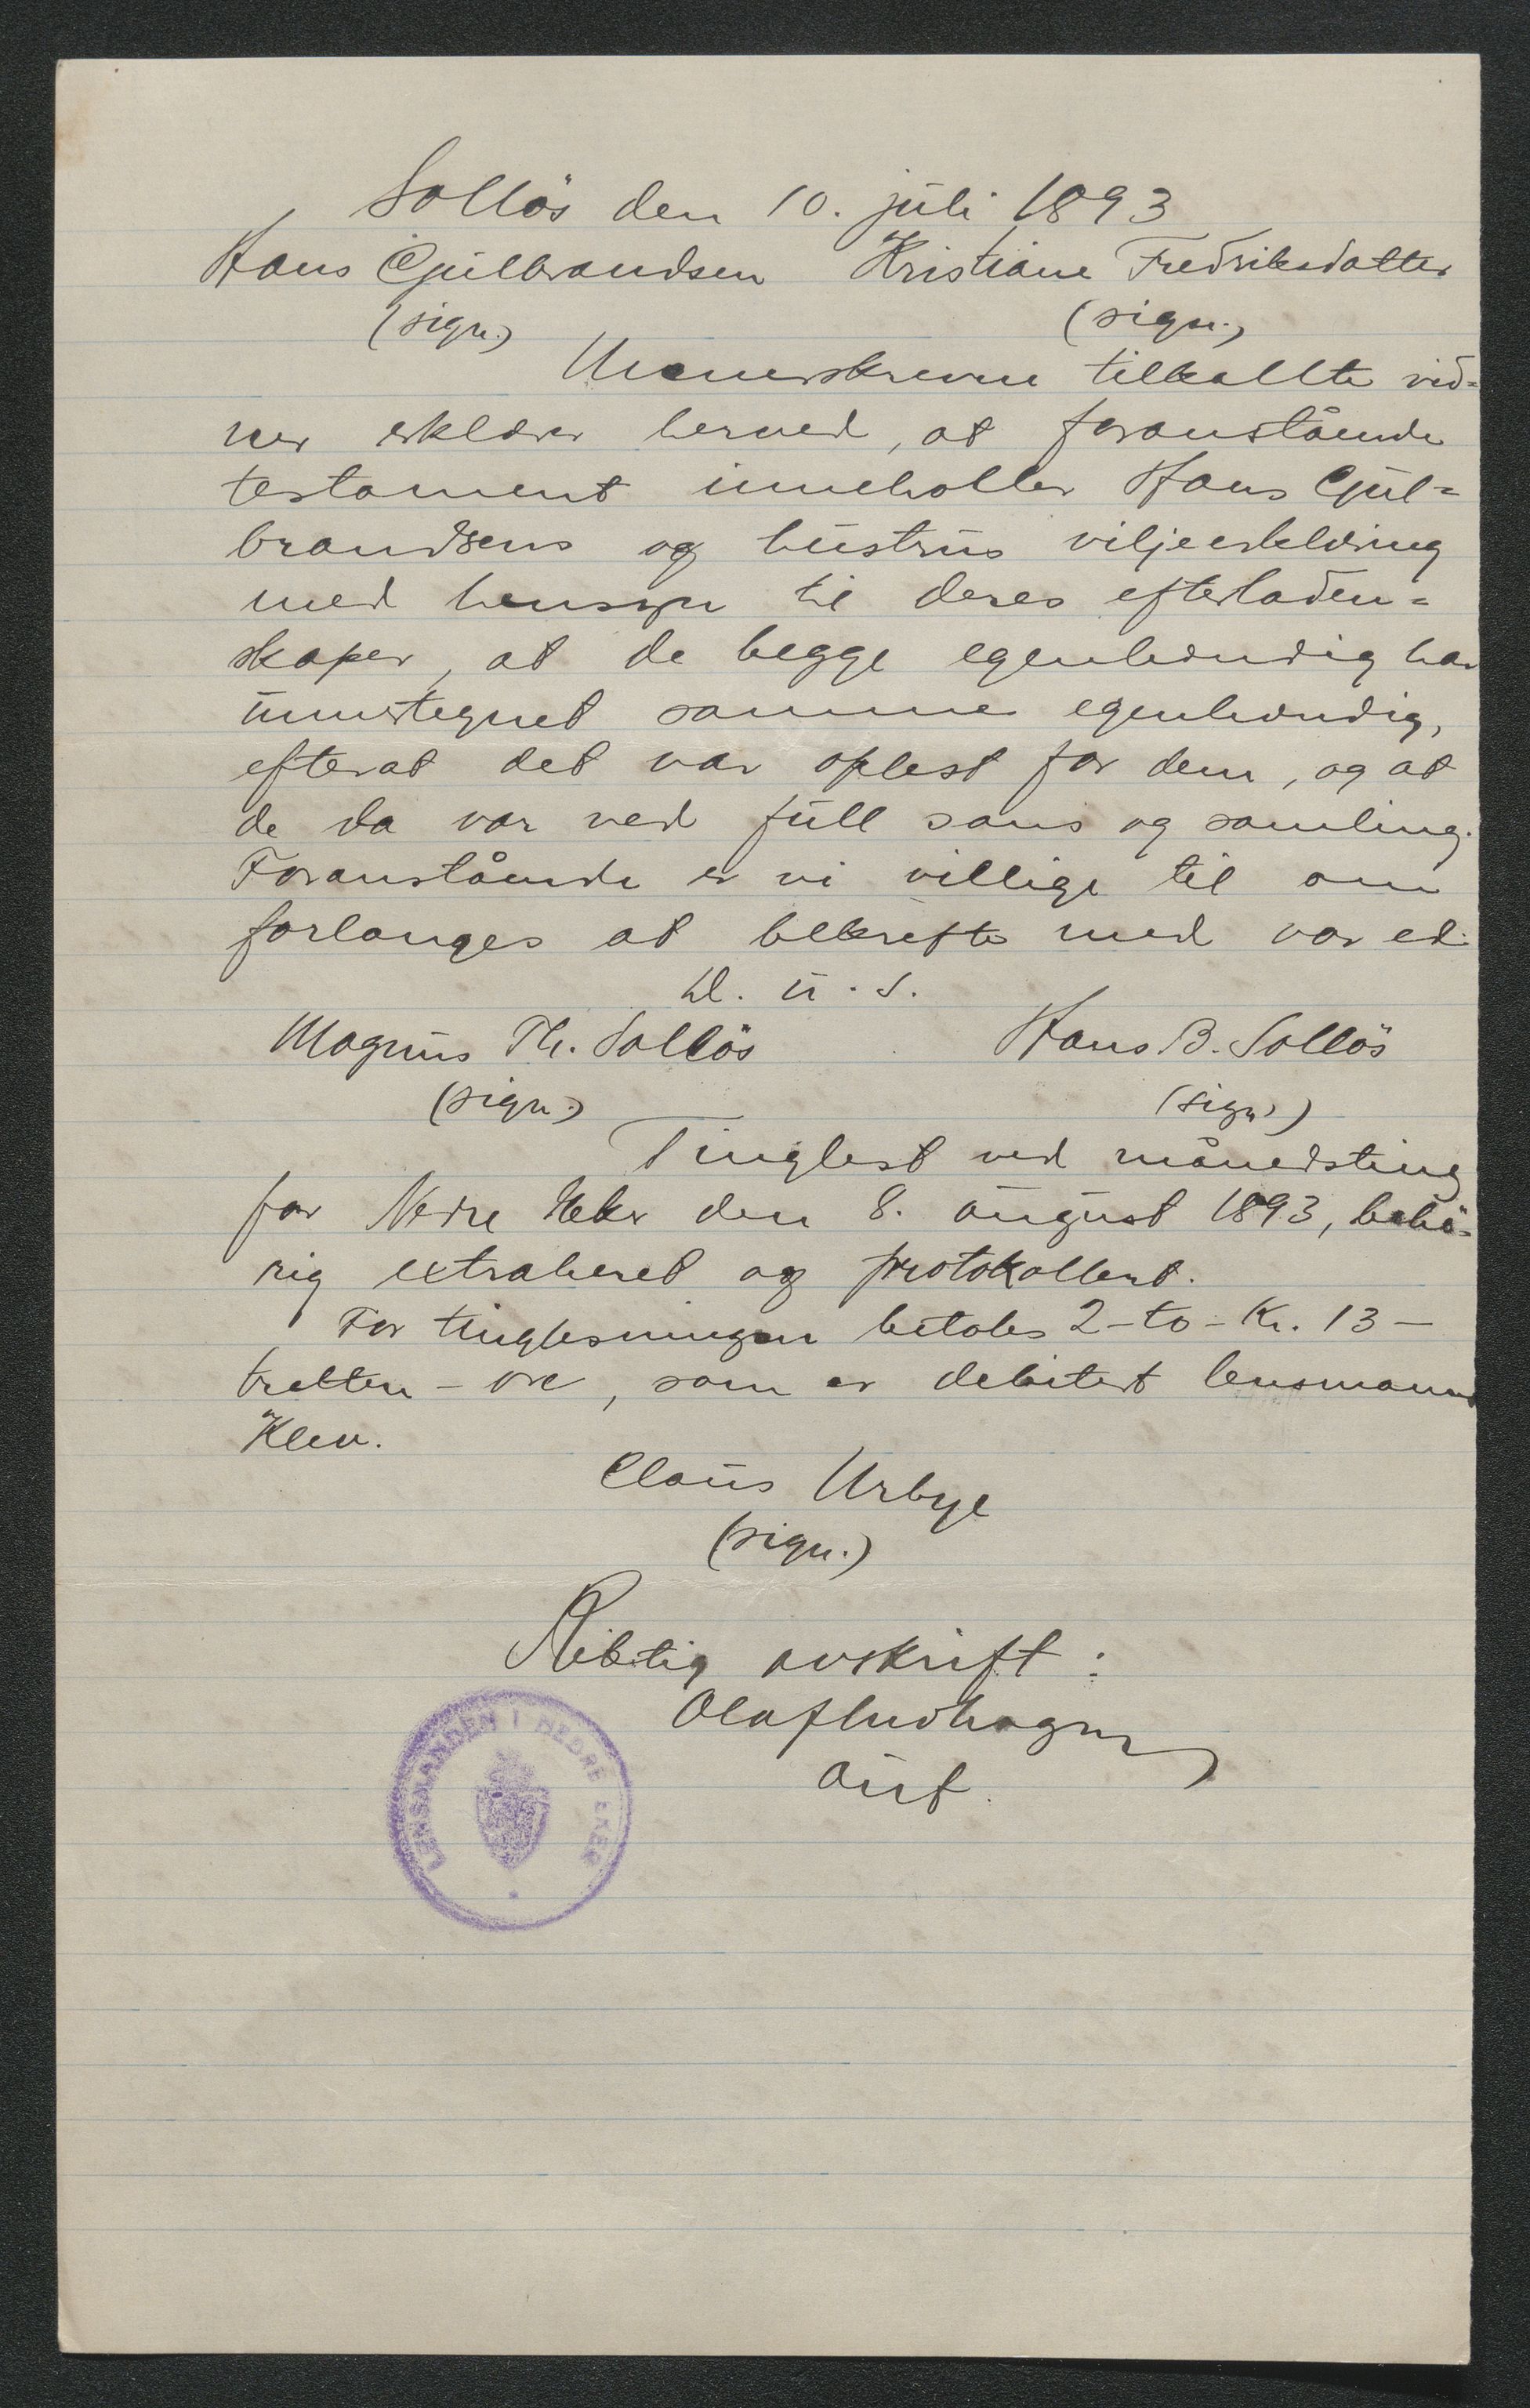 Sollös den 10. juli 1893
Hans Gulbrandsen Kristiane Fredriksdatter
(sign.) (sign.)
Unnerskrevne tilkallte vid=
ner erklærer herved, at foranstående
testament inneholler Hans Gul=
brandsens og hustrus viljeerklæring
med hensyn til deres efterladen=
skaper, at de begge egenhendig har
unnertegnet samme egenhendig,
efterat det var oplest for dem, og at
de da var ved full sans og samling.
Foranstående er vi villige til om
forlanges at bekrefte med vor ed.
D. u. s.
Magnus Th. Sollös Hans B. Sollös
(sign.) (sign.)
Tinglest ved månedsting
for Nedre Eker den 8. august 1893, behö=
rig extraheret og protokollert.
For tinglesningen betales 2 - to - Kr. 13 -
tretten - øre, som er debitert lensmann
Klev.
Claus Urbye
(sign.)
Riktig avskrift:
aut.
LENSMANDEN I NEDRE EKER